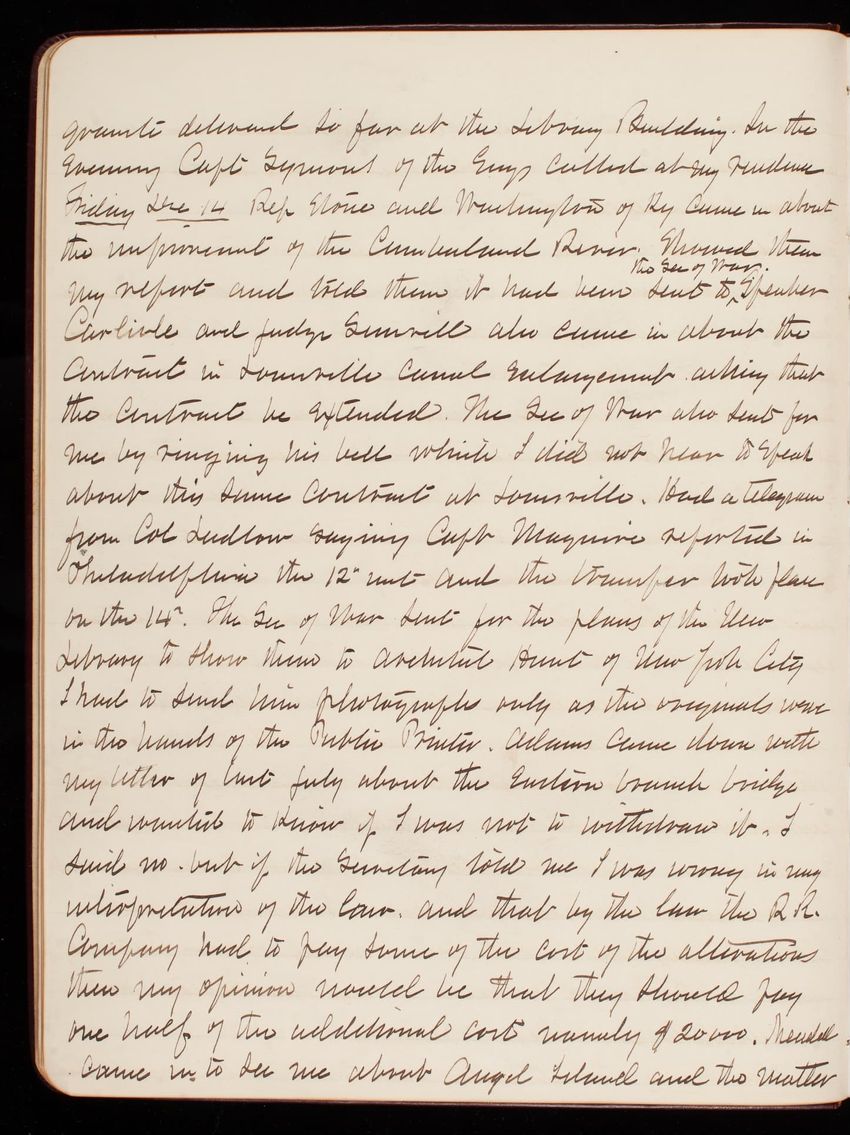 granite delivered so far at the Library Building. In the
Evening Capt Symons of the Engs called at my residence
Friday Dec 14 Rep Stone and Worthington of Ky came in about
the improvement of the Cumberland River. Showed them
the Sec of War.
my report and told them it had been sent to Speaker
Carlisle and Judge also came in about the
Contract in Louisville Canal Enlargement asking that
the contract be Extended. The Sec of War also sent for
me by ringing his bell which I did not hear to speak
about this same Contract at Louisville. Had a telegram
from Col Ludlow saying Capt Maguire reported in
Philadelphia the 12" inst and the transfer took place
on the 14". The Sec of War sent for the plans of the New
Library to show them to Architect Hunt of New York City
I had to send him photographs only as the originals were
in the hands of the Public Printer. Adams came down with
my letter of last July about the Eastern branch bridge
and wanted to know if I was not to withdraw it. I
said no - but if the Secretary told me I was wrong in my
interpretation of the law. and that by the law the R.R.
Company had to pay some of the cost of the alterations
then my opinion would be that they should pay
one half of the additional cost namely $20000. Mendell
came in to see me about Angel Island and the matter